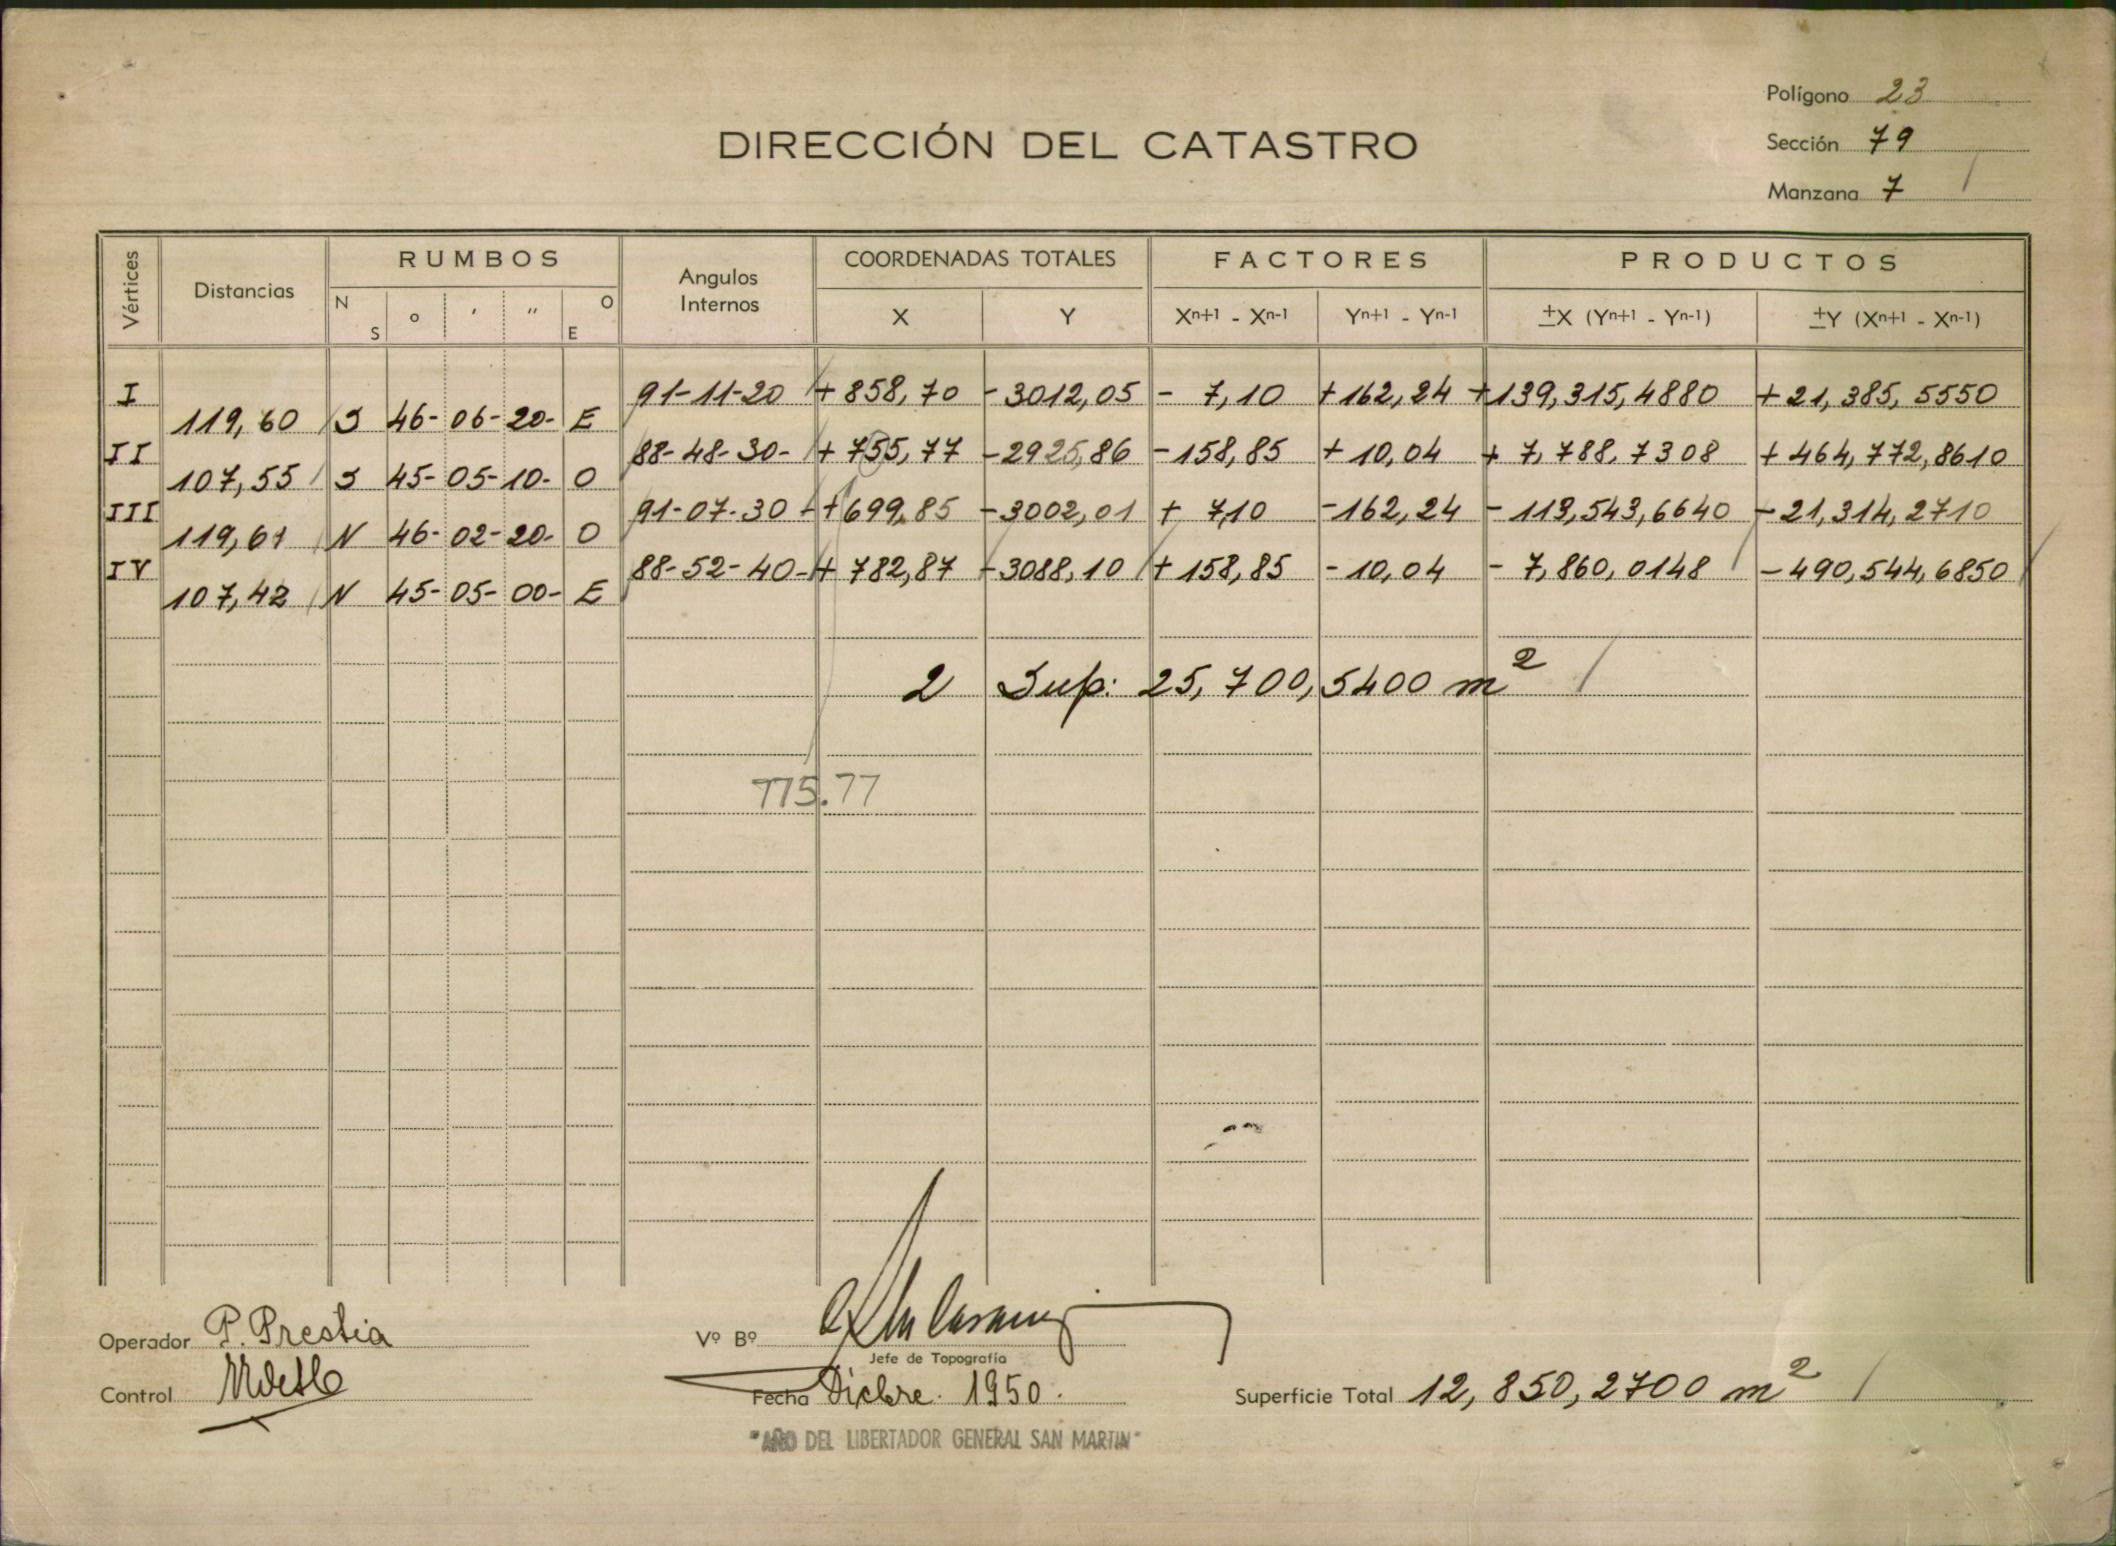 Polígono 23
DIRECCIÓN DEL CATASTRO
Sección 79
Manzana 7
Vértices Distancias RUMBOS Angulos Internos COORDENADAS TOTALES FACTORES PRODUCTOS
N S o ′ ″ O E X Y Xn+1 - Xn-1 Yn+1 - Yn-1 ±X (Yn+1 - Yn-1) ±Y (Xn+1 - Xn-1)
I 91-11-20 +858,70 -3012,05 - 7,10 +162,24 +139,315,4880 +21,385,5550
119,60 S 46- 06- 20- E
II 88-48-30- +755,77 -2925,86 -158,85 +10,04 + 7,788,7308 +464,772,8610
107,55 S 45- 05- 10- O
III 91-07-30 +699,85 -3002,01 + 7,10 -162,24 -113,543,6640 -21,314,2710
119,61 N 46- 02- 20- O
IV 88-52-40- +782,87 -3088,10 +158,85 -10,04 - 7,860,0148 -490,544,6850
107,42 N 45- 05- 00- E
2 Sup: 25,700,5400 m²
775.77
Operador P. Prestia
Vº Bº
Jefe de Topografía
Control
Fecha Dicbre. 1950.
Superficie Total 12,850,2700 m²
"AÑO DEL LIBERTADOR GENERAL SAN MARTIN"